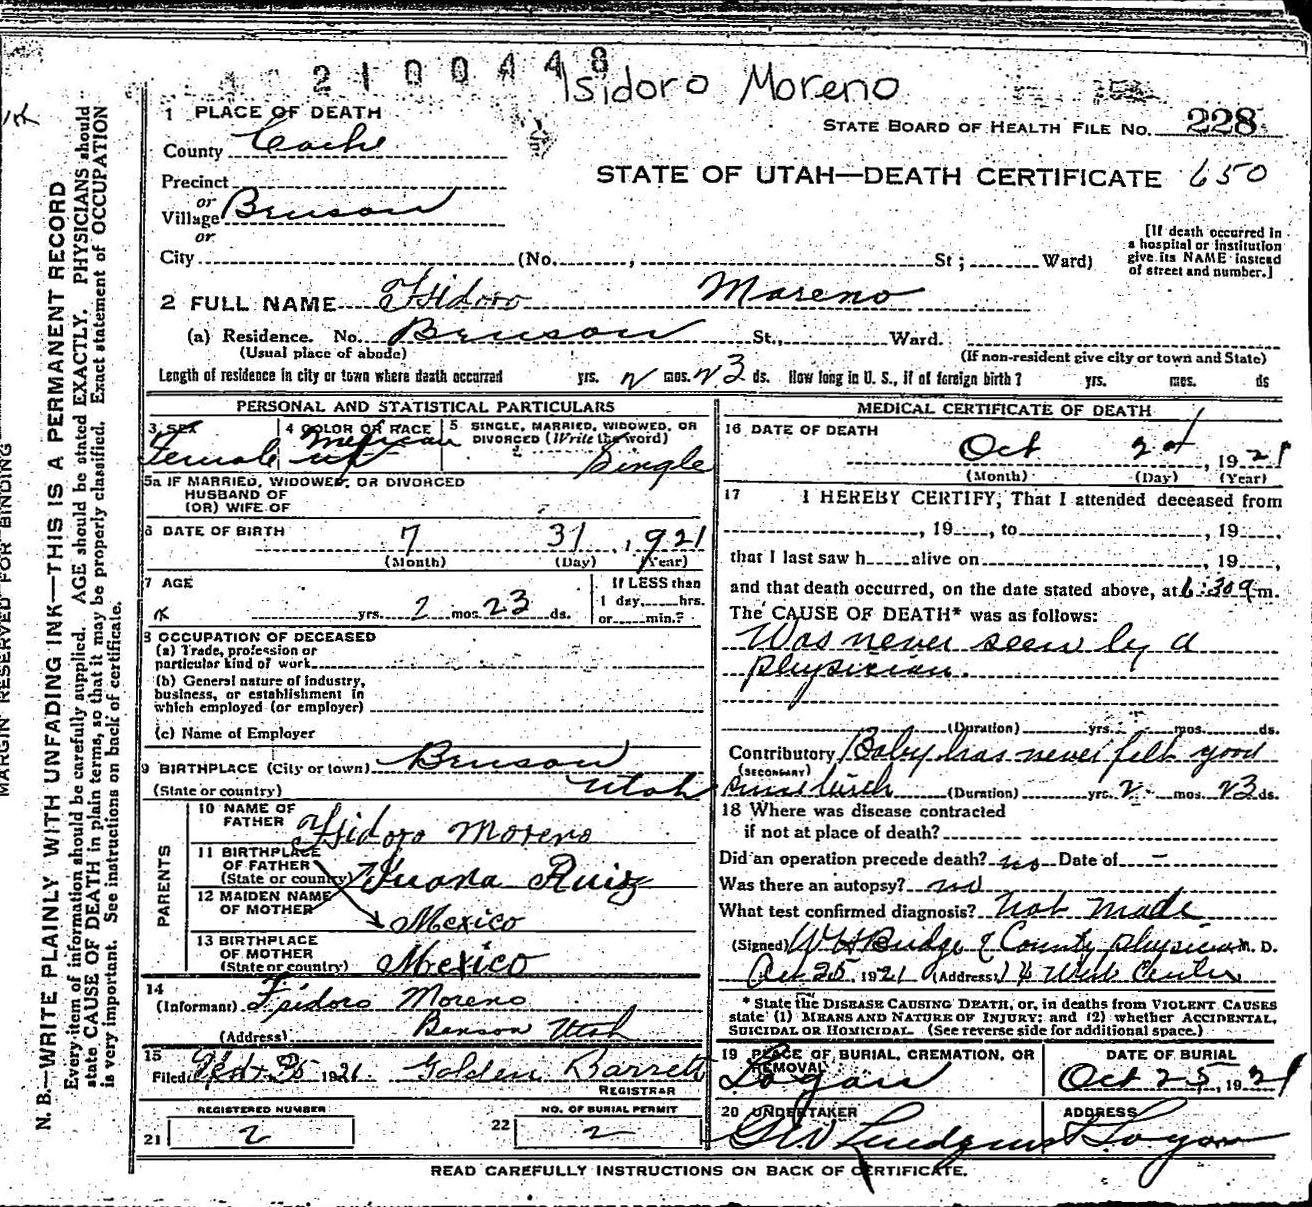 2100448
Isidoro Moreno
1 PLACE OF DEATH
STATE BOARD OF HEALTH FILE NO. 228
County Cache
STATE OF UTAH—DEATH CERTIFICATE 650
Precinct
or
Village Benson
or
City (No. , St ; Ward)
[If death occurred in
a hospital or institution
give its NAME instead
of street and number.]
2 FULL NAME Isidoro Moreno
(a) Residence. No. Benson St., Ward.
(Usual place of abode) (If non-resident give city or town and State)
Length of residence in city or town where death occurred yrs. 2 mos. 23 ds. How long in U. S., if of foreign birth? yrs. mos. ds
PERSONAL AND STATISTICAL PARTICULARS
3 SEX 4 COLOR OR RACE 5 SINGLE, MARRIED, WIDOWED, OR
DIVORCED (Write the word)
Female Mexican Single
5a IF MARRIED, WIDOWED, OR DIVORCED
HUSBAND OF
(OR) WIFE OF
6 DATE OF BIRTH 7 31 1921
(Month) (Day) (Year)
7 AGE If LESS than
yrs. 2 mos. 23 ds. 1 day, hrs.
or min.?
8 OCCUPATION OF DECEASED
(a) Trade, profession or
particular kind of work
(b) General nature of industry,
business, or establishment in
which employed (or employer)
(c) Name of Employer
9 BIRTHPLACE (City or town) Benson
(State or country) Utah
PARENTS
10 NAME OF
FATHER Isidoro Moreno
11 BIRTHPLACE
OF FATHER
(State or country) Juana Ruiz
12 MAIDEN NAME
OF MOTHER Mexico
13 BIRTHPLACE
OF MOTHER
(State or country) Mexico
14
(Informant) Isidoro Moreno
(Address) Benson Utah
15
Filed 25 1921 Golden Barrett
REGISTRAR
REGISTERED NUMBER
21 2
NO. OF BURIAL PERMIT
22 2
MEDICAL CERTIFICATE OF DEATH
16 DATE OF DEATH
Oct , 1921
(Month) (Day) (Year)
17 I HEREBY CERTIFY, That I attended deceased from
, 19 , to , 19 ,
that I last saw h alive on , 19 ,
and that death occurred, on the date stated above, at 6:30 a m.
The CAUSE OF DEATH* was as follows:
Was never seen by a
physician.
(Duration) yrs. mos. ds.
Contributory Baby has never felt good
(SECONDARY)
since birth (Duration) yrs. 2 mos. 23 ds.
18 Where was disease contracted
if not at place of death?
Did an operation precede death? no Date of —
Was there an autopsy? no
What test confirmed diagnosis? Not made
(Signed) W H Budge County physician M. D.
Oct 25, 1921 (Address) West Center
* State the DISEASE CAUSING DEATH, or, in deaths from VIOLENT CAUSES
state (1) MEANS AND NATURE OF INJURY; and (2) whether ACCIDENTAL,
SUICIDAL OR HOMICIDAL. (See reverse side for additional space.)
19 PLACE OF BURIAL, CREMATION, OR
REMOVAL
Logan
DATE OF BURIAL
Oct 25, 1921
20 UNDERTAKER
Lindquist
ADDRESS
Logan
READ CAREFULLY INSTRUCTIONS ON BACK OF CERTIFICATE.
MARGIN RESERVED FOR BINDING
N. B.—WRITE PLAINLY WITH UNFADING INK—THIS IS A PERMANENT RECORD
Every item of information should be carefully supplied. AGE should be stated EXACTLY. PHYSICIANS should
state CAUSE OF DEATH in plain terms, so that it may be properly classified. Exact statement of OCCUPATION
is very important. See instructions on back of certificate.